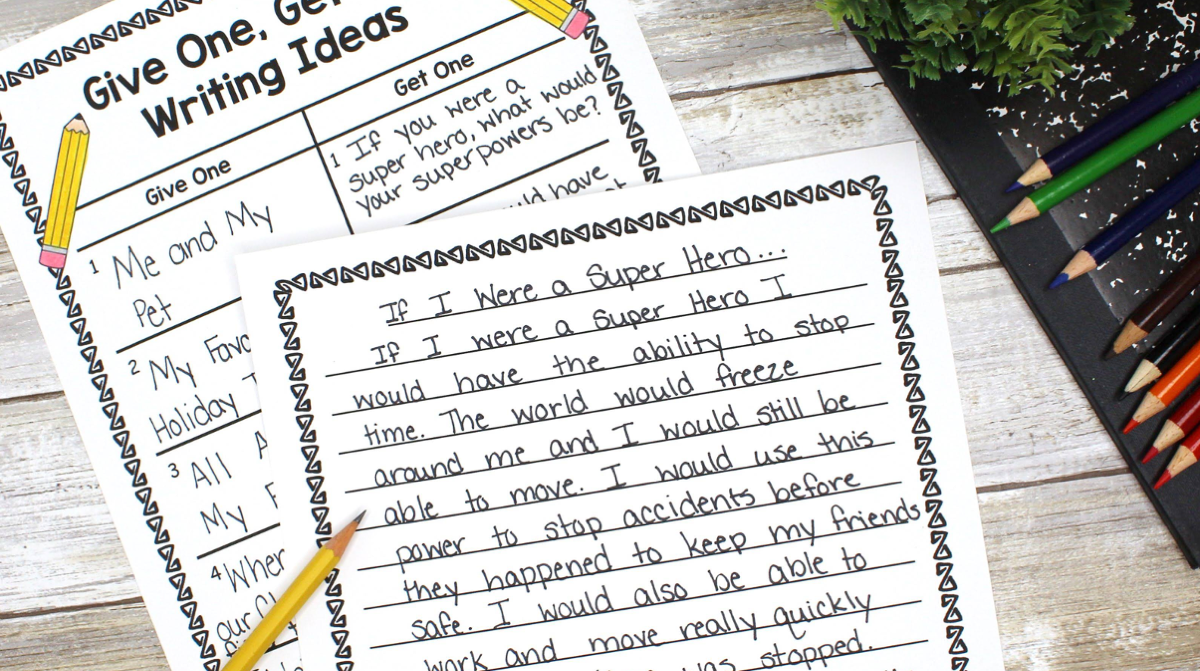 Give One, Get
Writing Ideas
Give One
Get One
1 Me and My
Pet
2 My Favo
Holiday
3 All
My
4 Wher
our
1 If you were a
super hero, what would
your superpowers be?
have
If I Were a Super Hero...
If I were a Super Hero I
would have the ability to stop
time. The world would freeze
around me and I would still be
able to move. I would use this
power to stop accidents before
they happened to keep my friends
safe. I would also be able to
work and move really quickly
was stopped.